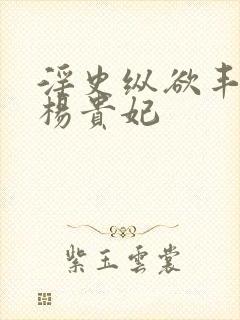 淫史纵欲丰
杨贵妃
紫玉雲裳